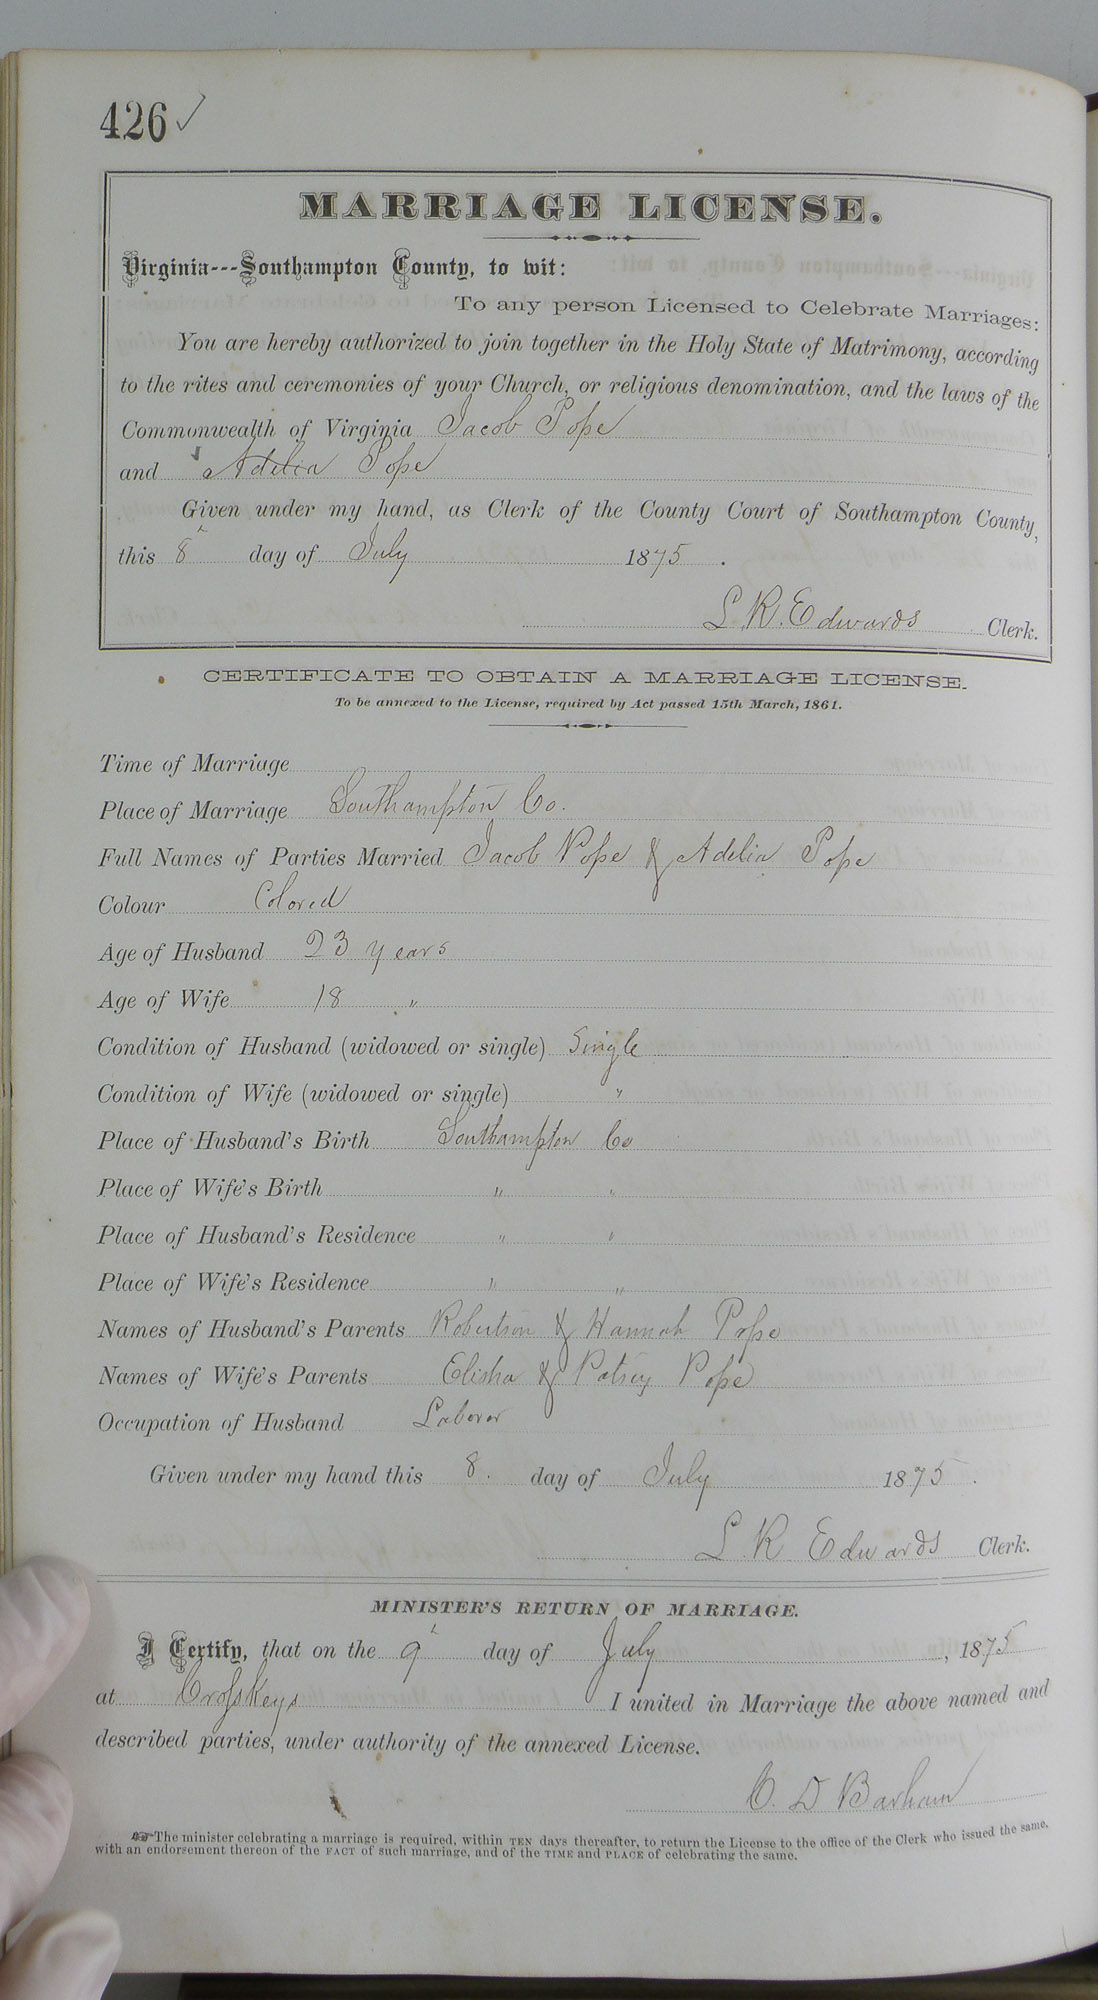 426 ✓
MARRIAGE LICENSE.
Virginia---Southampton County, to wit:
To any person Licensed to Celebrate Marriages:
You are hereby authorized to join together in the Holy State of Matrimony, according
to the rites and ceremonies of your Church, or religious denomination, and the laws of the
Commonwealth of Virginia Jacob Pope
and Adelia Pope
Given under my hand, as Clerk of the County Court of Southampton County,
this 8 day of July 1875.
L. R. Edwards Clerk.
CERTIFICATE TO OBTAIN A MARRIAGE LICENSE.
To be annexed to the License, required by Act passed 15th March, 1861.
Time of Marriage
Place of Marriage Southampton Co.
Full Names of Parties Married Jacob Pope & Adelia Pope
Colour Colored
Age of Husband 23 years
Age of Wife 18 "
Condition of Husband (widowed or single) Single
Condition of Wife (widowed or single) "
Place of Husband's Birth Southampton Co
Place of Wife's Birth " "
Place of Husband's Residence " "
Place of Wife's Residence " "
Names of Husband's Parents Robertson & Hannah Pope
Names of Wife's Parents Elisha & Patsey Pope
Occupation of Husband Laborer
Given under my hand this 8. day of July 1875.
L R Edwards Clerk.
MINISTER'S RETURN OF MARRIAGE.
I Certify, that on the 9 day of July, 1875
at CrossKeys I united in Marriage the above named and
described parties, under authority of the annexed License.
C. D Barham
☞The minister celebrating a marriage is required, within TEN days thereafter, to return the License to the office of the Clerk who issued the same,
with an endorsement thereon of the FACT of such marriage, and of the TIME and PLACE of celebrating the same.